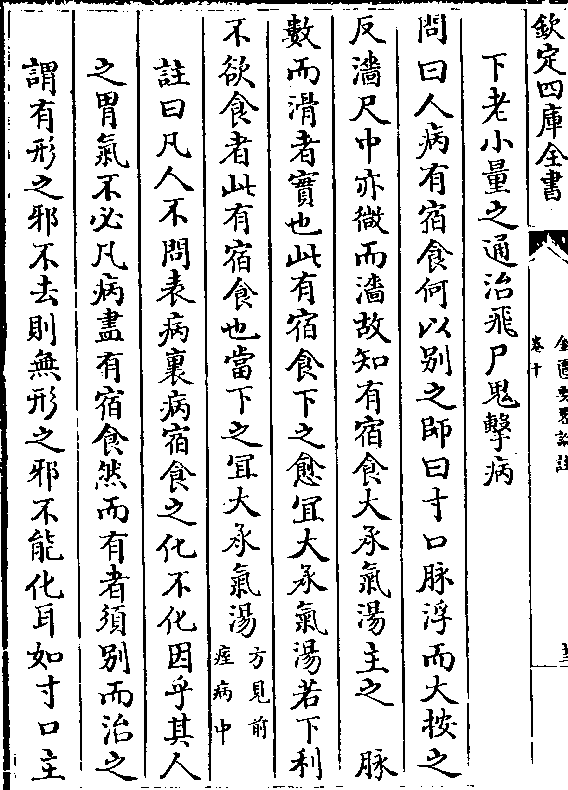 欽定四庫全書
金匱要略論註
卷十
下老小量之通治飛尸鬼擊病
問曰人病有宿食何以别之師曰寸口脉浮而大按之
反濇尺中亦微而濇故知有宿食大承氣湯主之　脉
數而滑者實也此有宿食下之愈宜大承氣湯若下利
不欲食者此有宿食也當下之宜大承氣湯方見前痙病中
註曰凡人不問表病裏病宿食之化不化因乎其人
之胃氣不必凡病盡有宿食然而有者須别而治之
謂有形之邪不去則無形之邪不能化耳如寸口主